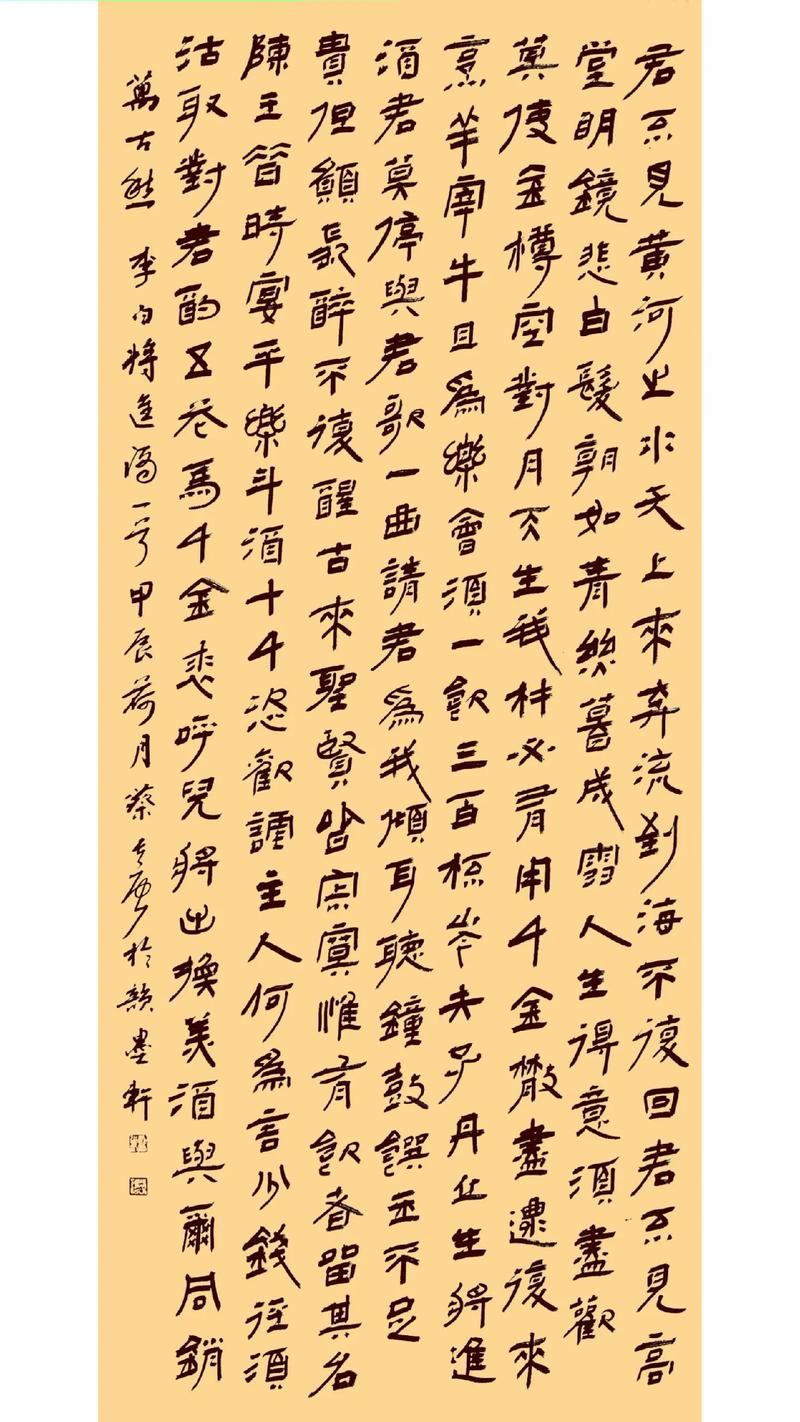 君不見黃河之水天上來奔流到海不復回君不見高
堂明鏡悲白髮朝如青絲暮成雪人生得意須盡歡
莫使金樽空對月天生我材必有用千金散盡還復來
烹羊宰牛且為樂會須一飲三百杯岑夫子丹丘生將進
酒君莫停與君歌一曲請君為我傾耳聽鐘鼓饌玉不足
貴但願長醉不復醒古來聖賢皆寂寞惟有飲者留其名
陳王昔時宴平樂斗酒十千恣歡謔主人何為言少錢徑須
沽取對君酌五花馬千金裘呼兒將出換美酒與爾同銷
萬古愁 李白將進酒一首甲辰荷月蔡於韻墨軒